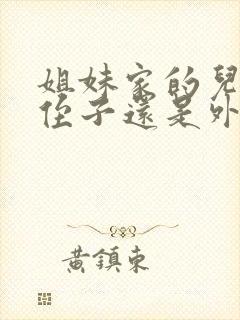 姐妹家的兒
侄子還是外
黃鎮東